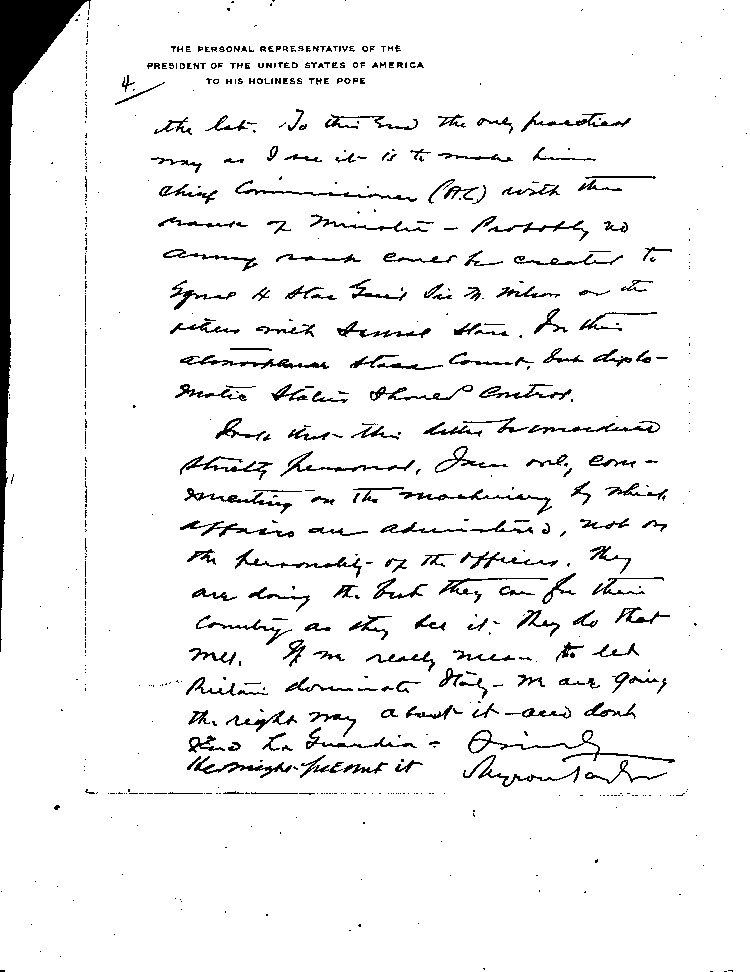 THE PERSONAL REPRESENTATIVE OF THE
PRESIDENT OF THE UNITED STATES OF AMERICA
TO HIS HOLINESS THE POPE
4.
the lot. To this end the only practical
way as I see it is to make him
Chief Commissioner (A.C) with the
rank of Minister – Probably no
army rank could be created to
equal 4 Star Gen'l Sir M. Wilson or the
others with several stars. In this
atmosphere stars count, but diplo-
matic status should control.
I ask that this letter be considered
strictly personal, I am only com-
menting on the machinery by which
affairs are administered, not on
the personality of the officers. They
are doing the best they can for their
Country as they see it. They do that
well. If we really mean to let
Britain dominate Italy – we are going
the right way about it – and dont
send La Guardia –
He might prevent it
Myron Taylor